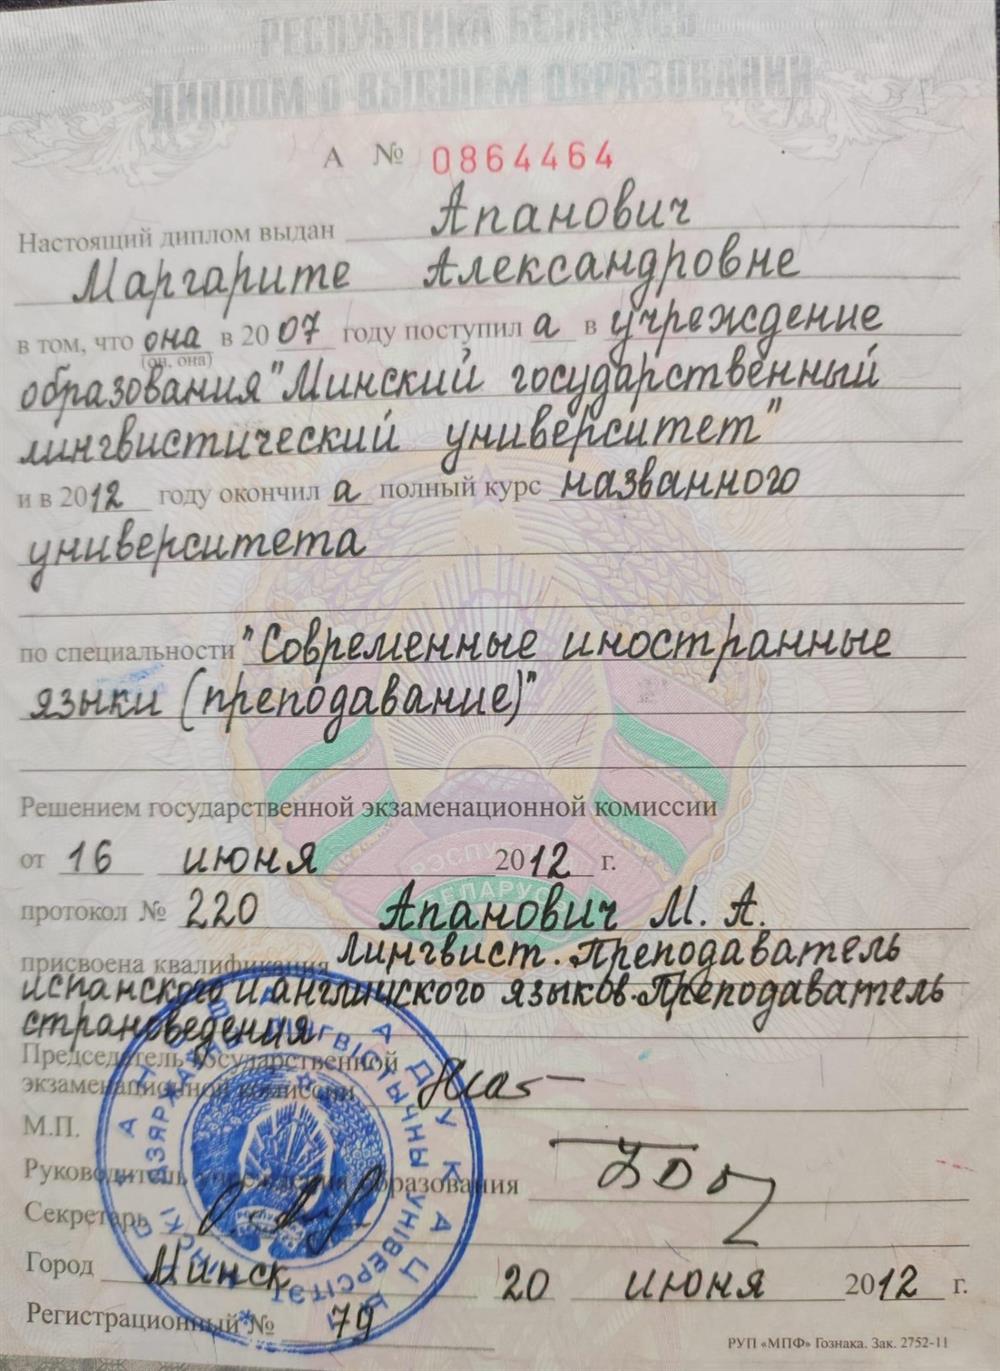 РЕСПУБЛИКА БЕЛАРУСЬ
ДИПЛОМ О ВЫСШЕМ ОБРАЗОВАНИИ
А № 0864464
Настоящий диплом выдан Апанович
Маргарите Александровне
в том, что она в 2007 году поступила в учреждение
(он, она)
образования "Минский государственный
лингвистический университет"
и в 2012 году окончила полный курс названного
университета
по специальности "Современные иностранные
языки (преподавание)"
Решением государственной экзаменационной комиссии
от 16 июня 2012 г.
протокол № 220 Апанович М. А.
присвоена квалификация Лингвист. Преподаватель
испанского и английского языков. Преподаватель
страноведения
Председатель государственной
экзаменационной комиссии
М.П.
Руководитель учреждения образования
Секретарь
Город Минск 20 июня 2012 г.
Регистрационный № 79
РУП «МПФ» Гознака. Зак. 2752-11